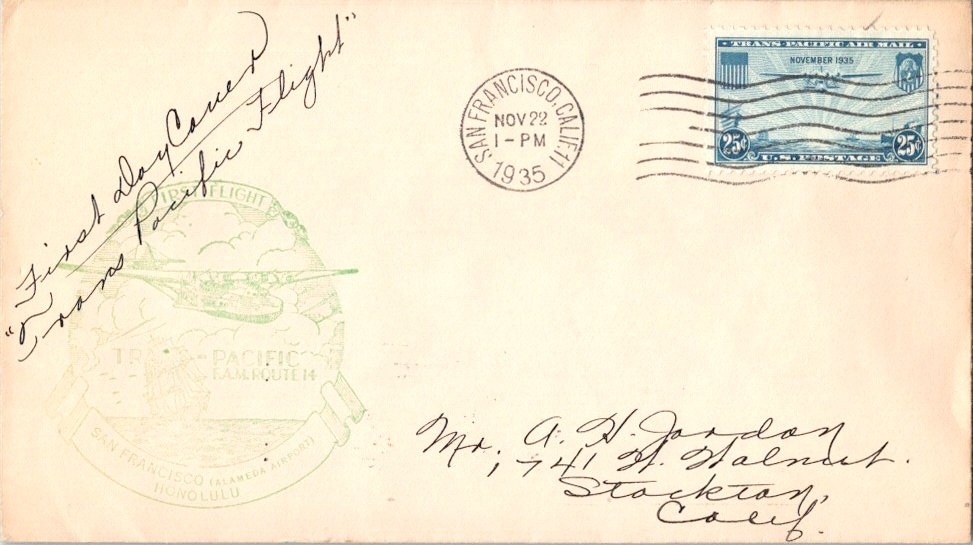 First Day Cover
"Trans Pacific Flight"
SAN FRANCISCO, CALIF. 11
NOV 22
1-PM
1935
TRANS-PACIFIC AIR MAIL
NOVEMBER 1935
25¢ U.S. POSTAGE 25¢
FIRST FLIGHT
TRANS-PACIFIC
F.A.M. ROUTE 14
SAN FRANCISCO (ALAMEDA AIRPORT)
HONOLULU
Mr. A. H. Jordon
1741 W. Walnut.
Stockton,
Calif.